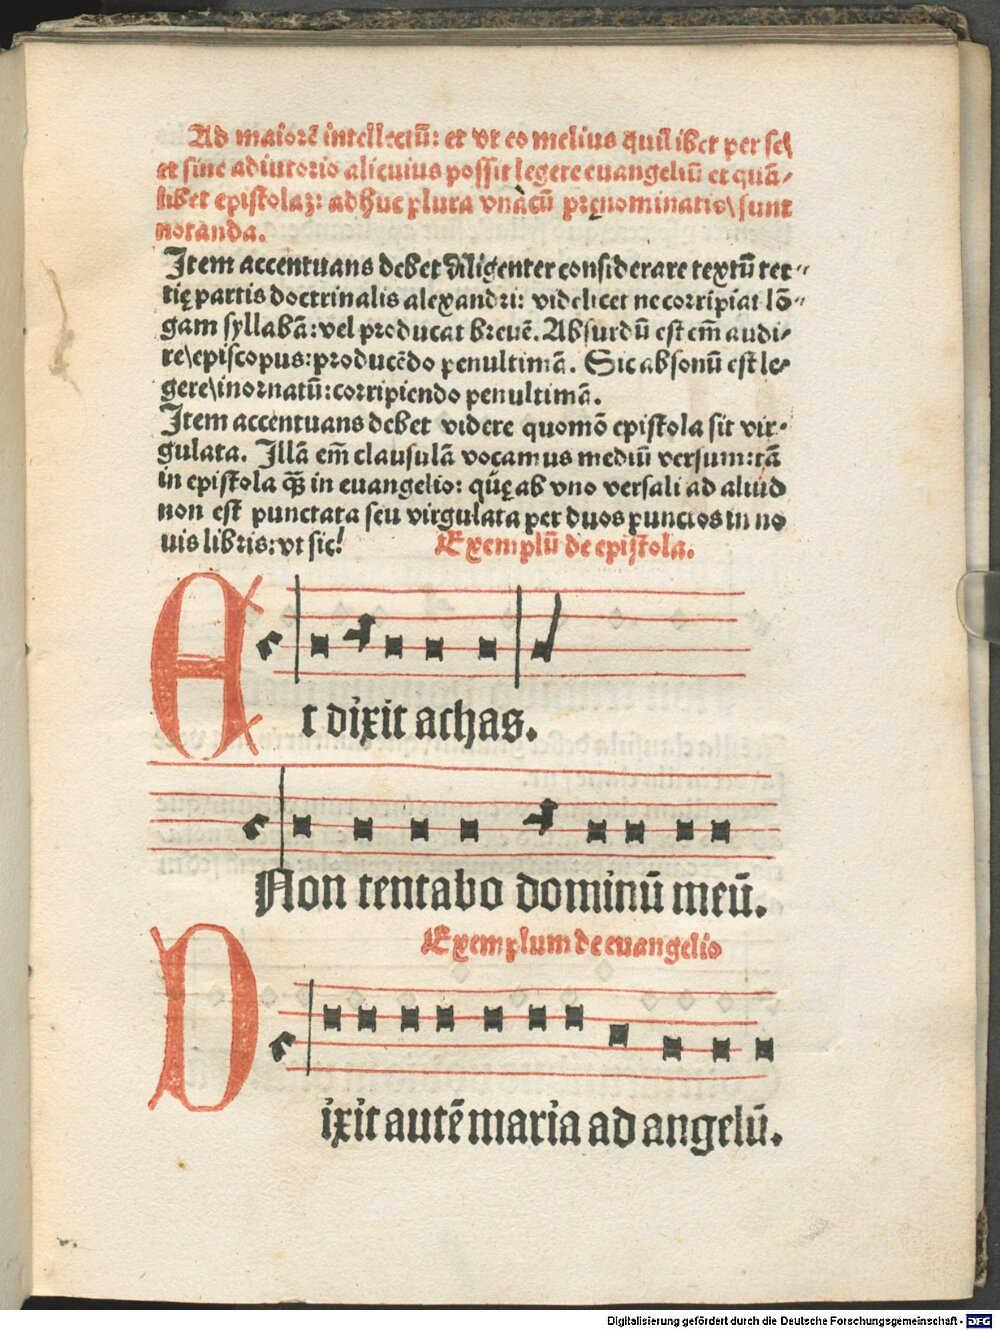 Ad maiorē intellectū: et vt eo melius quilibet per se\
et sine adiutorio alicuius possit legere euangeliū et quā⸗
libet epistolaꝝ: adhuc plura vnàcū pręnominatis\ sunt
notanda.
Item accentuans debet diligenter considerare textū ter⸗
tię partis doctrinalis alexandri: videlicet ne corripiat lō⸗
gam syllabā: vel producat breuē. Absurdū est em̄ audi⸗
re\ episcopus: producēdo penultimā. Sic absonū est le⸗
gere\ inornatū: corripiendo penultimā.
Item accentuans debet videre quomō epistola sit vir⸗
gulata. Illā em̄ clausulā vocamus mediū versum: tā
in epistola qꝫ̄ in euangelio: quę ab vno versali ad aliud
non est punctata seu virgulata per duos punctos in no
uis libris: vt sic!
Exemplū de epistola.
Et dixit achas.
Non tentabo dominū meū.
Exemplum de euangelio
Dixit autē maria ad angelū.
Digitalisierung gefördert durch die Deutsche Forschungsgemeinschaft - DFG